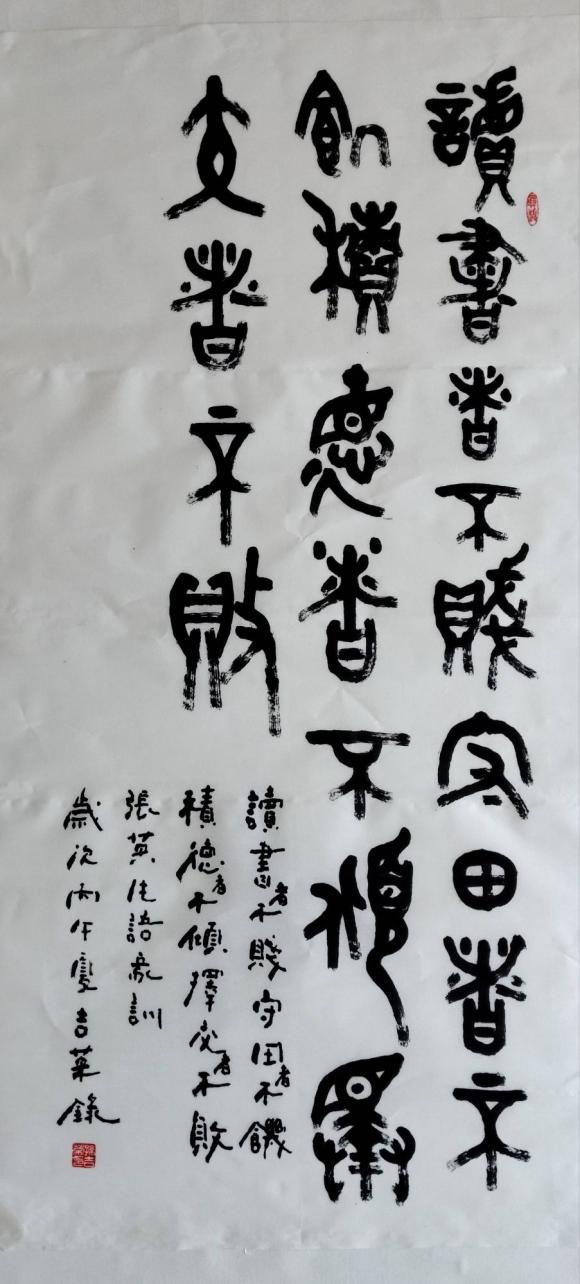 讀書者不賤守田者不
飢積德者不傾擇
交者不敗
讀書者不賤守田者不饑
積德者不傾擇交者不敗
張英語家訓
歲次丙午夏吉葉錄